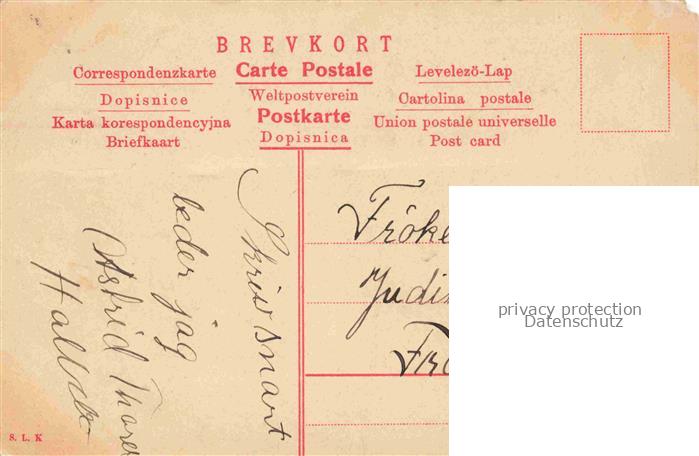 BREVKORT
Correspondenzkarte Carte Postale Levelező-Lap
Dopisnice Weltpostverein Cartolina postale
Karta korespondencyjna Postkarte Union postale universelle
Briefkaart Dopisnica Post card
Skriv snart
beder jag
Astrid Thore
Fröke
Judi
Fr
privacy protection
Datenschutz
S. L. K